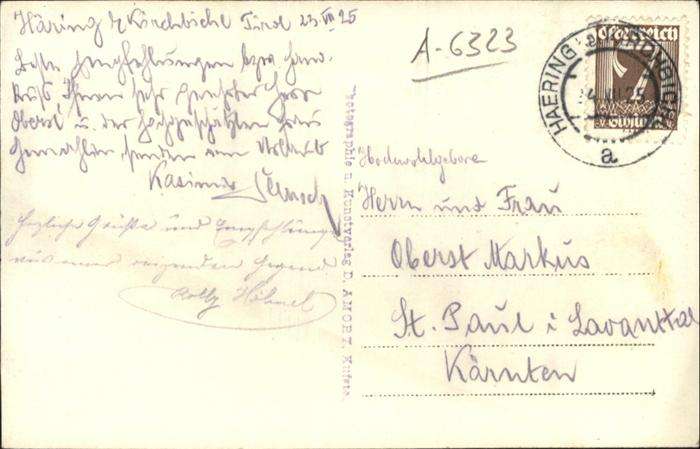 Häring b/ Kirchbichl Tirol 23.VII.25
Beste Empfehlungen bzw. Hand-
kuss, Ihnen sehr geehrter Herr
Oberst u. der hochgeschätzten Frau
Gemahlin, senden vom Urlaub
Kasimir
Herzliche Grüße und Empfehlungen
aus einer reizenden Gegend
A-6323
Österreich
HAERING
a
Photographie u. Kunstverlag D. AMORT, Kufstein
Hochwohlgeboren
Herrn und Frau
Oberst Markus
St. Paul i Lavanttal
Kärnten